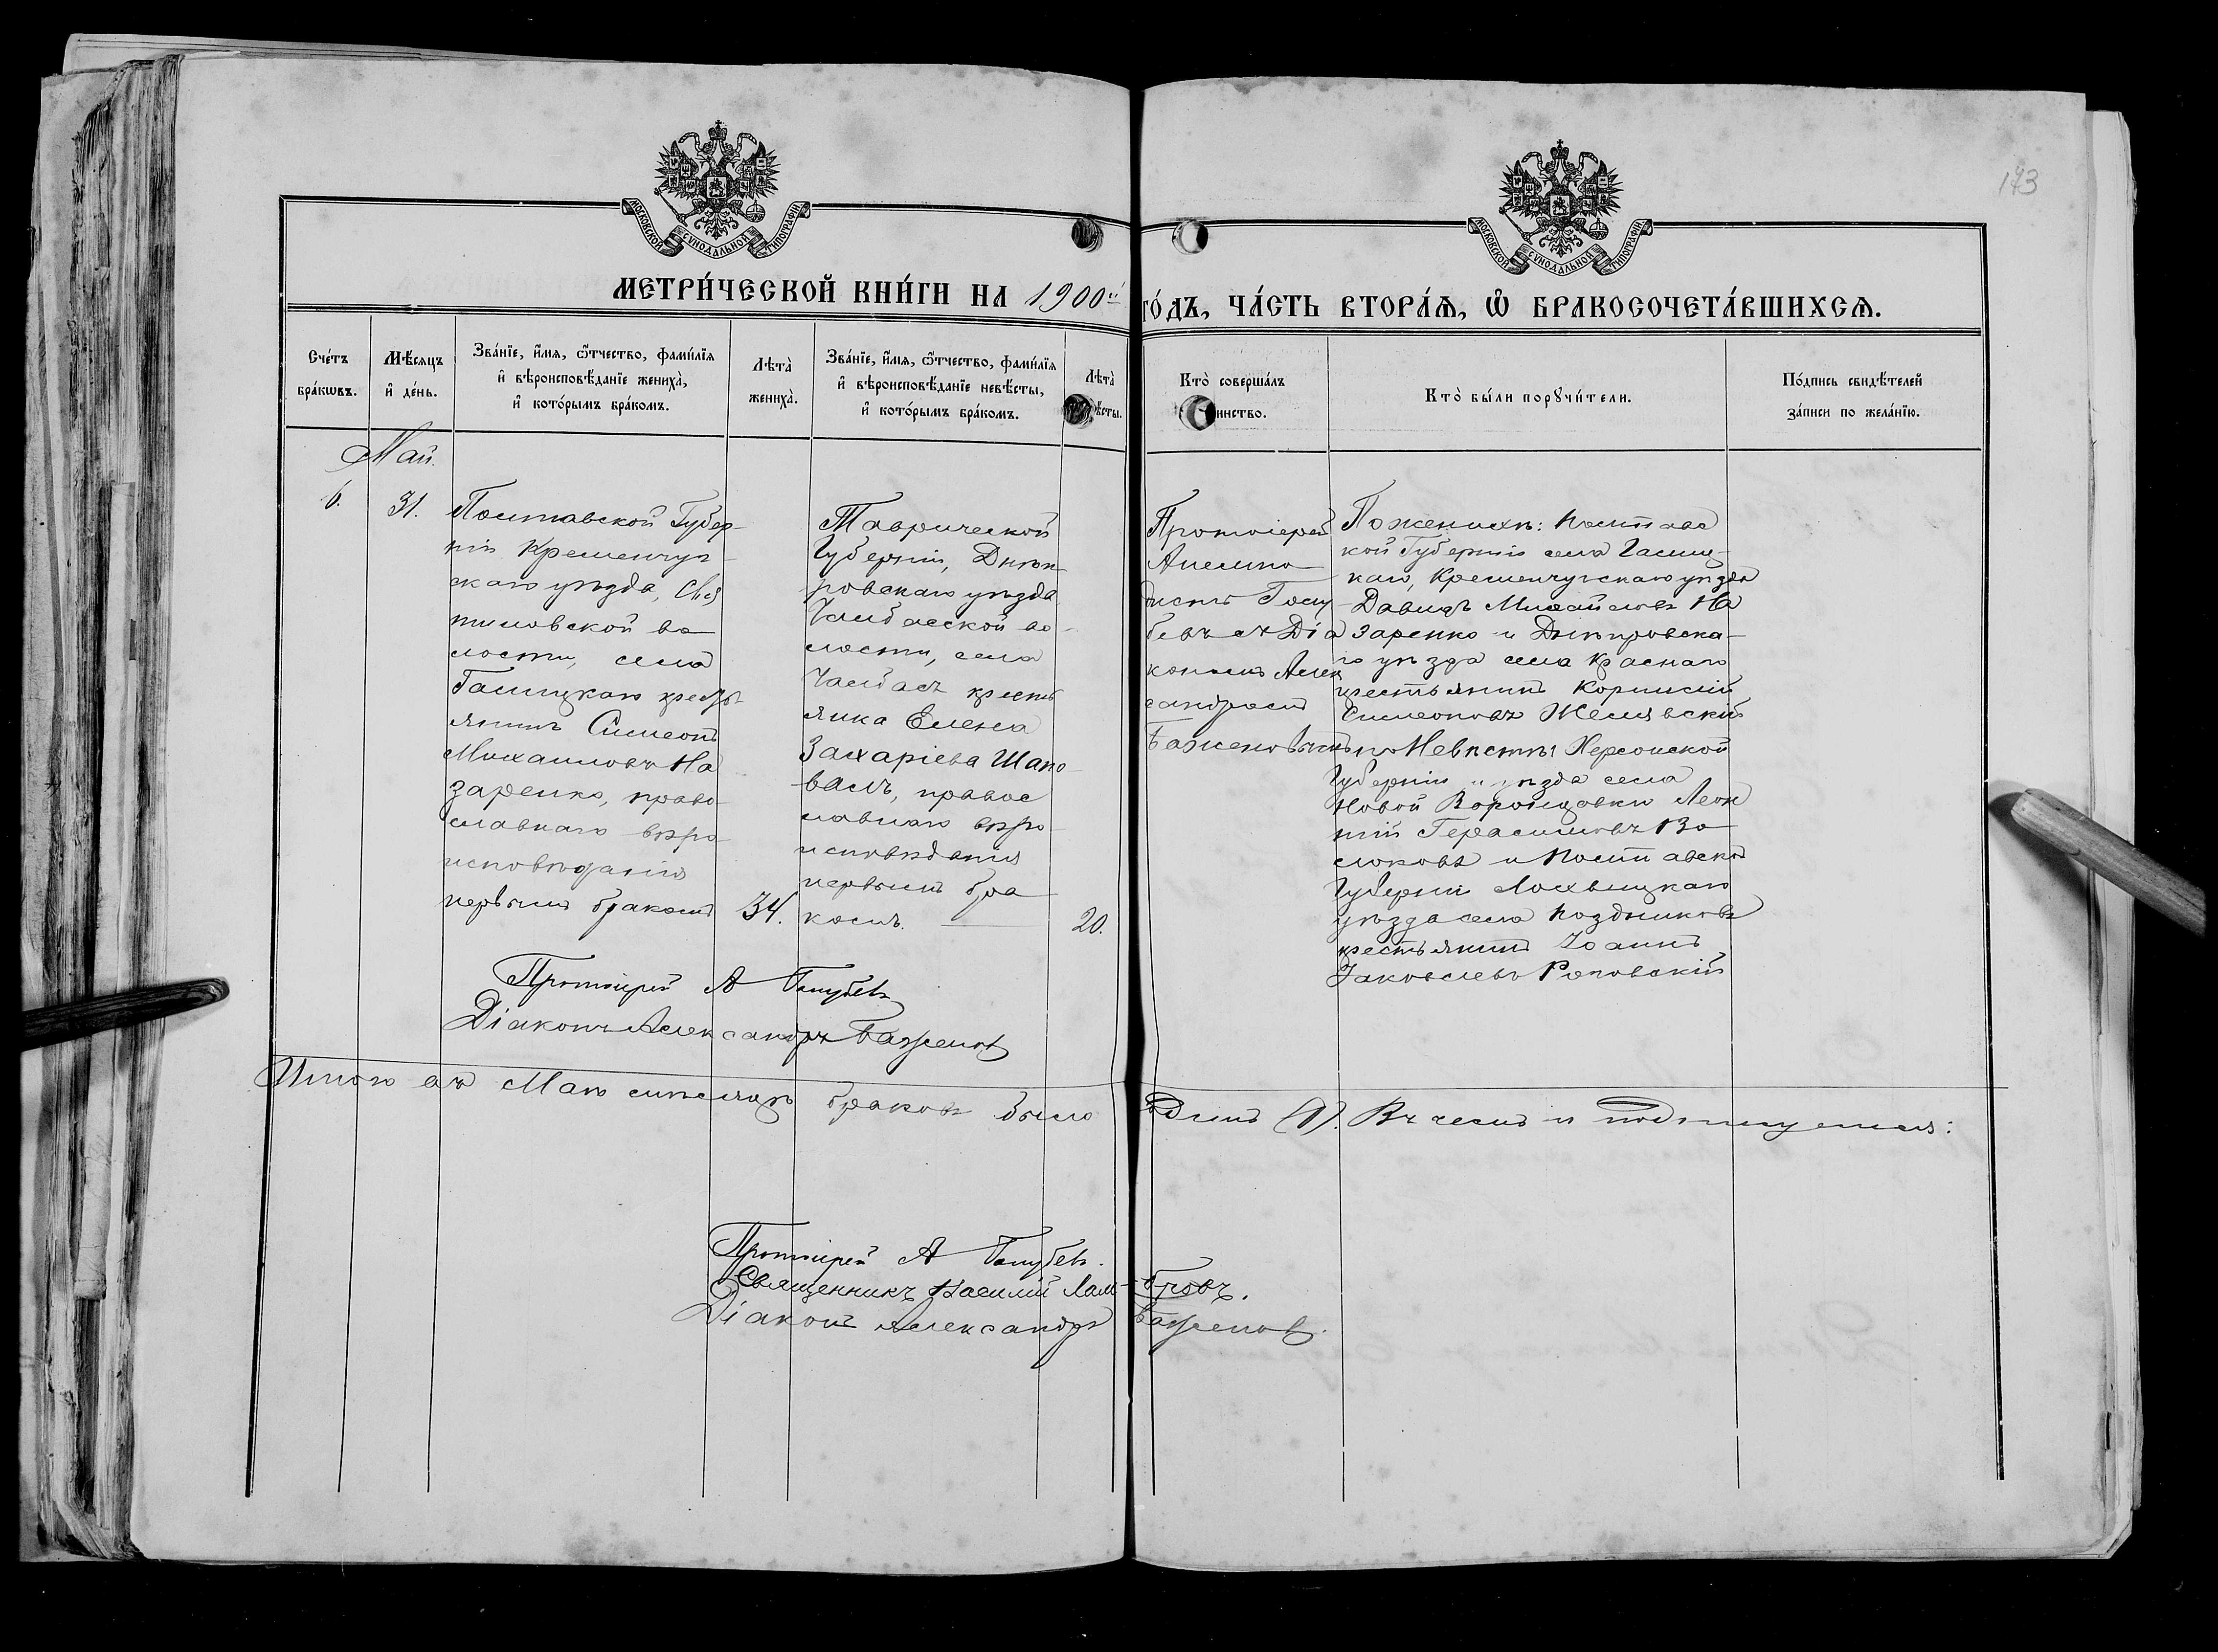 173
МОСКОВСКОЙ СУНОДАЛЬНОЙ ТИПОГРАФІИ.
МОСКОВСКОЙ СУНОДАЛЬНОЙ ТИПОГРАФІИ.
МЕТРИ́ЧЕСКОЙ КНИ́ГИ НА 1900й
ГО́ДЪ, ЧА́СТЬ ВТОРА́Я, Ѡ҆ БРАКОСОЧЕТА́ВШИХСЯ.
Сче́тъ
бра́кѡвъ.
Мѣ́сяцъ
и҆ де́нь.
Зва́нїе, и҆́мя, ѻ҆́тчество, фами́лїя
и҆ вѣроисповѣ́данїе жениха̀,
и҆ кото́рымъ бра́комъ.
Лѣта̀
жениха̀.
Зва́нїе, и҆́мя, ѻ҆́тчество, фами́лїя
и҆ вѣроисповѣ́данїе невѣ́сты,
и҆ кото́рымъ бра́комъ.
Лѣта̀
ѣ́сты.
Кто̀ соверша́лъ
инство.
Кто̀ бы́ли порꙋчи́тели.
По́дпись свидѣ́телей
за́писи по жела́нїю.
Май.
6.
31.
Полтавской Губер-
ніи Кременчуг-
скаго уѣзда,
пиловской во
лости, села
Галицкаго кресть
янинъ Симеонъ
Михаиловъ На
заренко, право-
славнаго вѣро-
исповѣданія
первымъ бракомъ
34.
Таврической
Губерніи, Днѣп-
ровскаго уѣзда
Чалбасской во-
лости, села
Чалбасъ кресть
янка Елена
Захаріева Шапо-
валъ, правос
лавнаго вѣро-
исповѣданія
первымъ бра
комъ.
20.
Протоіерей
Голу
бевъ съ Діа
кономъ Алек
сандромъ
Баженовымъ
По женихѣ: Полтавс
кой Губерніи села Галиц-
каго, Кременчугскаго уѣзда
Давидъ Михайловъ На
заренко и Днѣпровска-
го уѣзда села Краснаго
крестьянинъ Корнилій
Симеоновъ Желявскій
по Невѣстѣ Херсонской
Губерніи и уѣзда села
Новой Воронцовки Леон
тій Герасимовъ Во
локовъ и Полтавской
Губерніи Лохвицкаго
уѣзда села Поздниковъ
крестьянинъ Іоаннъ
Іаковлевъ Роповскій
Протоіерей А Голубевъ
Діаконъ Александръ Баженовъ
Итого въ Маѣ мѣсяцѣ браковъ было
Одинъ (1). Въ чемъ и подпишемся:
Протоіерей А Голубевъ.
Священникъ Василій Лам-бровъ.
Діаконъ Александръ Баженовъ.